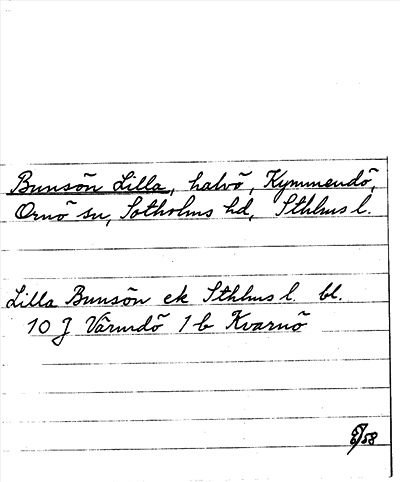 Bunsön Lilla, halvö, Kymmendö,
Ornö sn, Sotholms hd, Sthlms l.
Lilla Bunsön ek Sthlms l. bl.
10 J Värmdö 1 b Kvarnö
/58